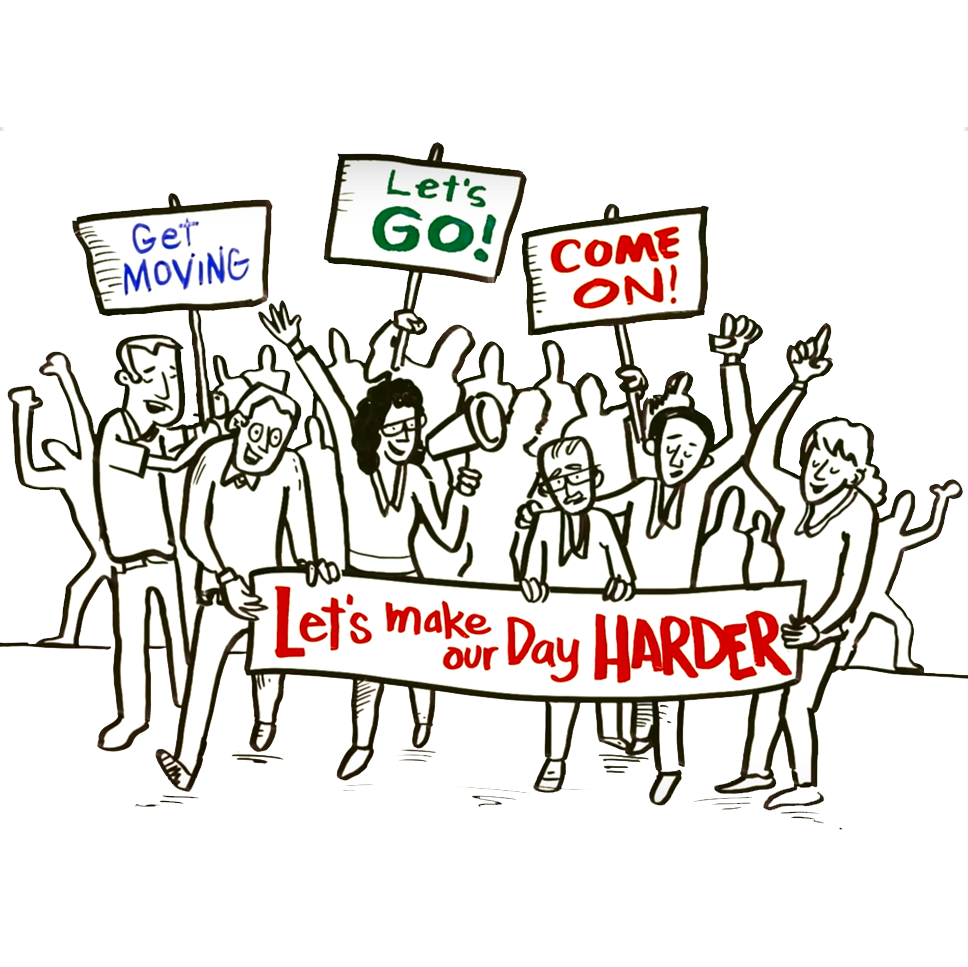 Get
MOVING
Let's
GO!
COME
ON!
Let's make
our Day HARDER